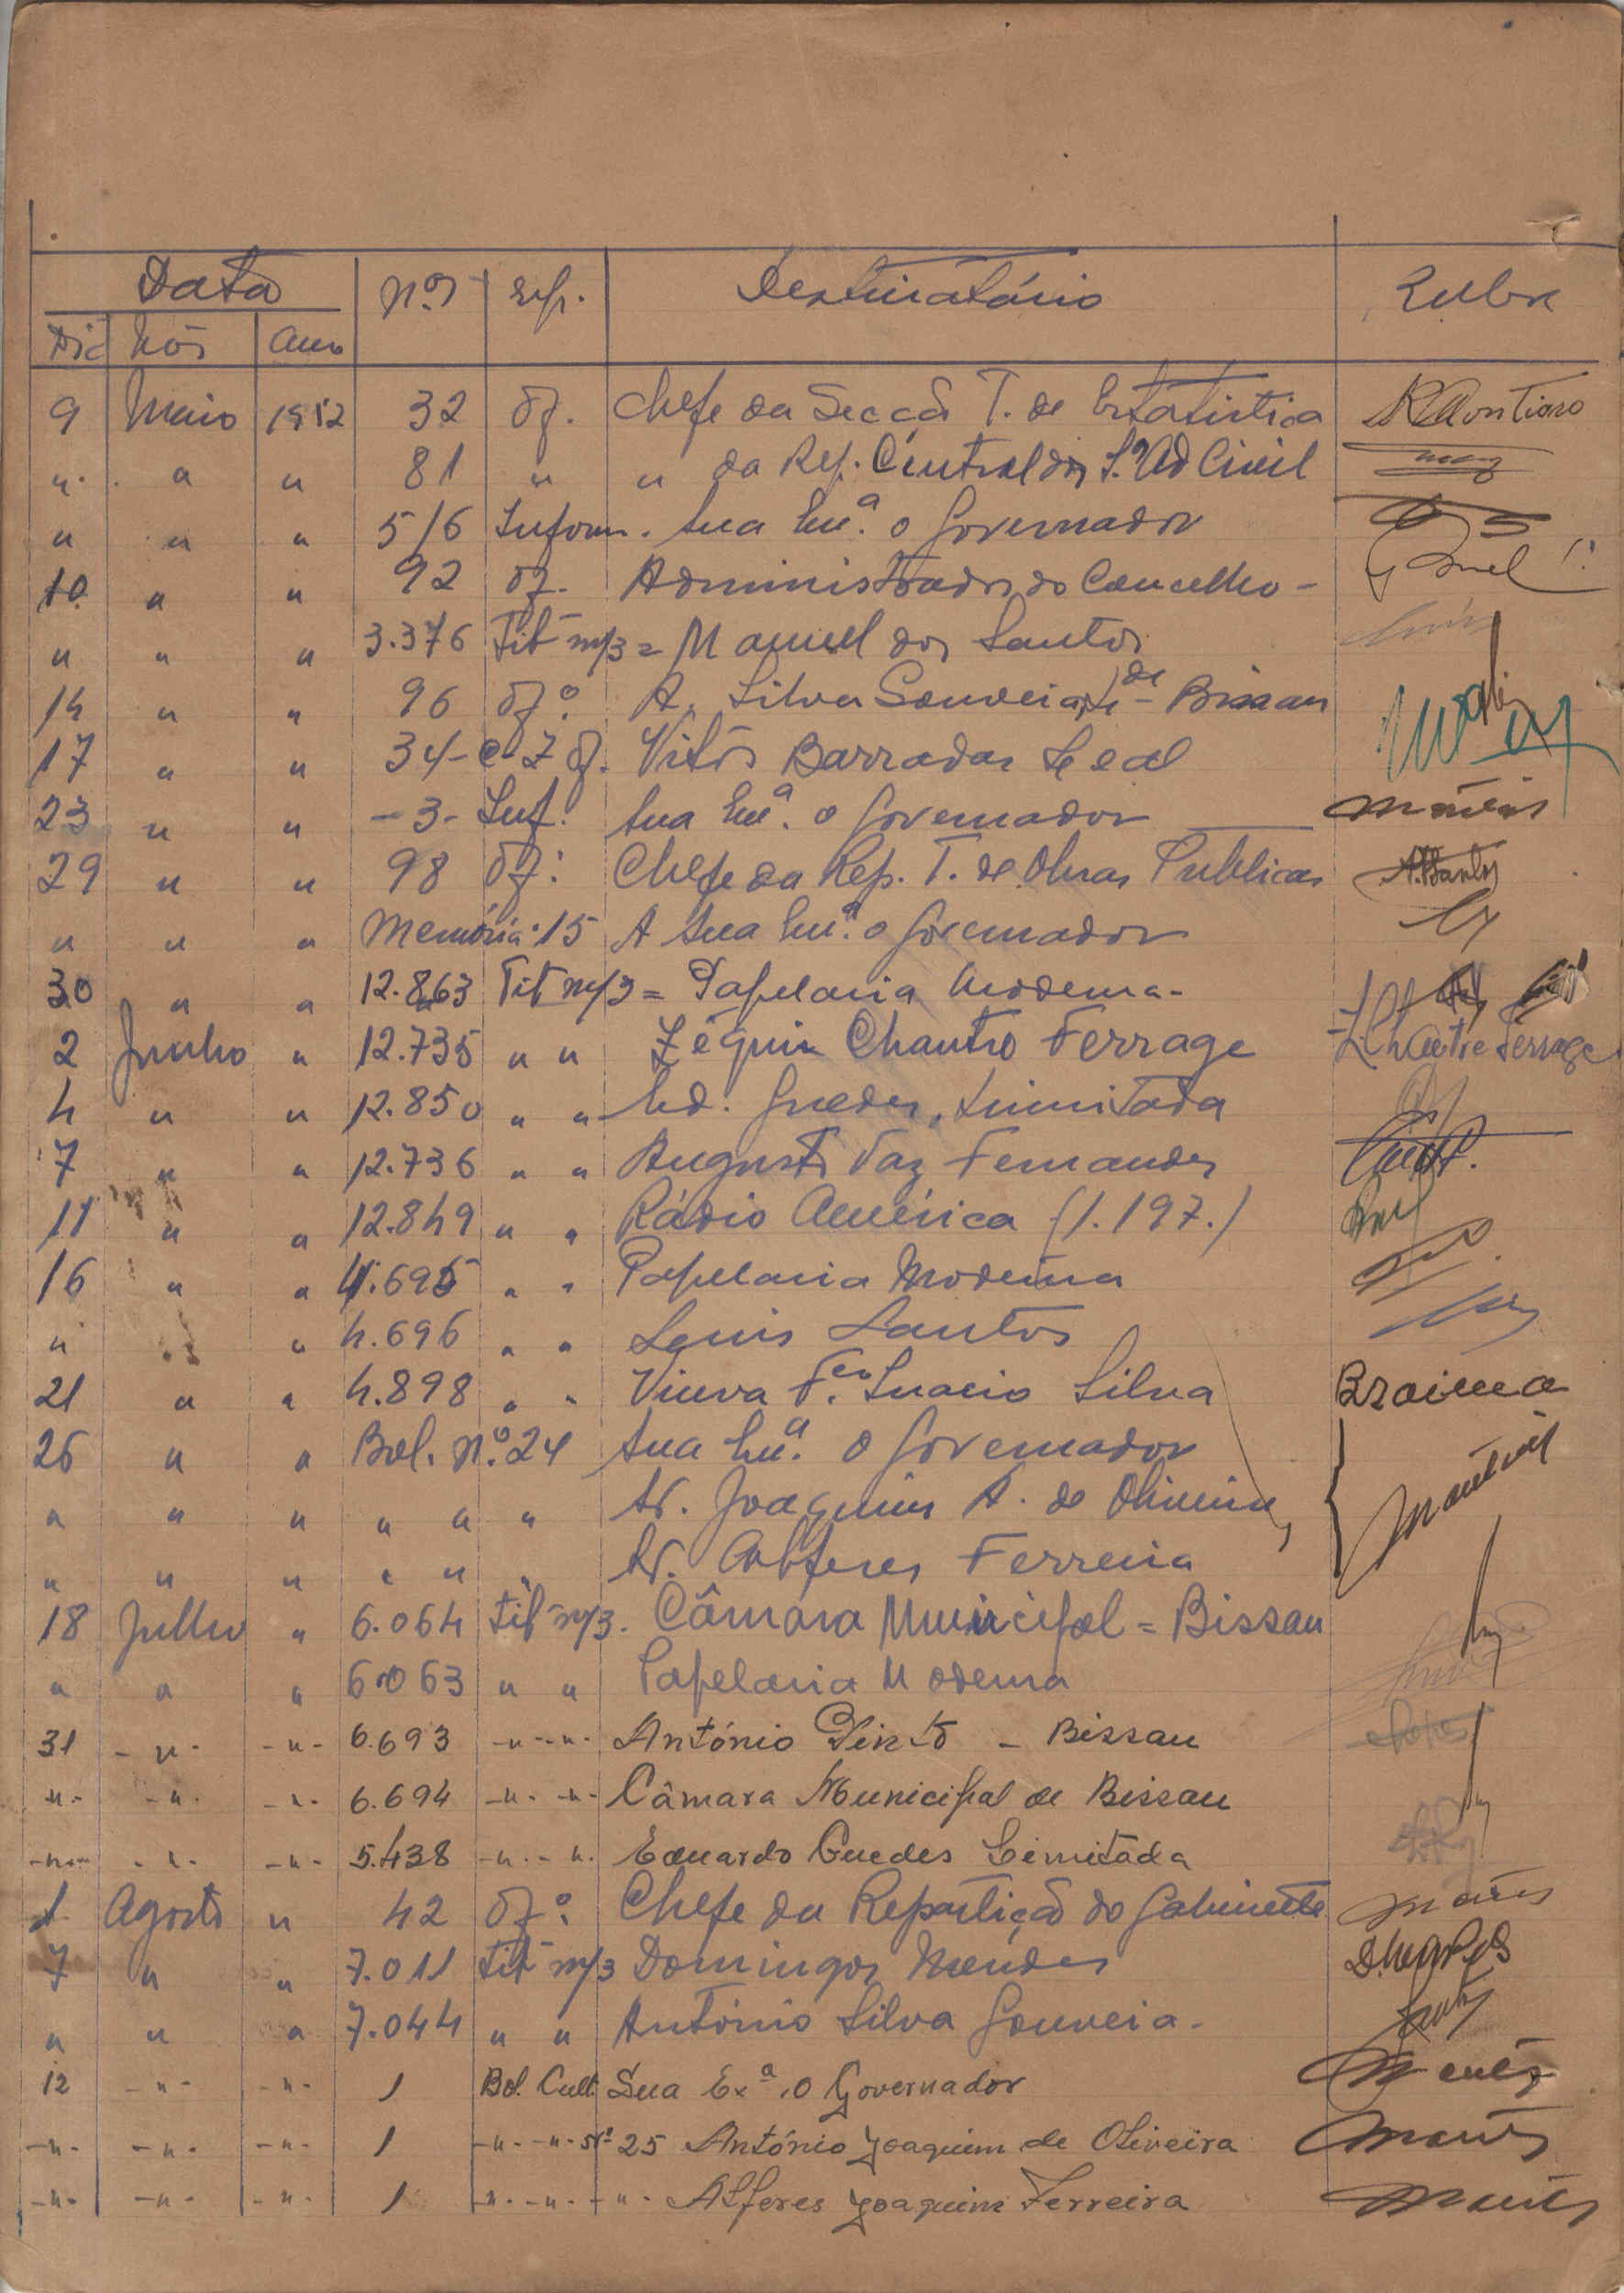 Data Nº Esp. Destinatário Rubr
Dia Mês Ano
9 Maio 1952 32 Of. Chefe da Secçã T. de Estatistica
" " " 81 " " da Rep. Central dos S. Ad Civil
" " " 516 Inform. Sua Exª. o Governador
10 " " 92 Of. Administrador do Concelho -
" " " 3.376 Tit m/3 = Manuel dos Santos
14 " " 96 Ofº. A. Silva Gouveia, - Bissau
17 " " 34-C-Z Of. Vitór Barradas Leal
23 " " -3- Inf. Sua Exª. o Governador
29 " " 98 Of: Chefe da Rep. T. de Obras Publicas A. Santos
" " " Memória 15 A Sua Exª. o Governador
30 " " 12.863 Tit m/3 = Papelaria Moderna -
2 Junho " 12.735 " " Zéguin Chautro Ferrage
4 " " 12.850 " " Ed. Guedes, Limitada
7 " " 12.736 " " Augusto Vaz Fernandes
11 " " 12.849 " " Rádio América (1.197.)
16 " " 4.695 " " Papelaria Moderna
" " " 4.696 " " Luis Santos
21 " " 4.898 " " Viuva Fco. Inacio Silva Braima
26 " " Bol. Nº. 24 Sua Exª. o Governador
" " " " " " Sr. Joaquim A. de Oliveira
" " " " " " Sr. Alferes Ferreira
18 Julho " 6.064 Tit m/3. Câmara Municipal = Bissau
" " " 6.063 " " Papelaria Moderna
31 -"- -"- 6.693 -"- -"- António Pinto - Bissau
-"- -"- -"- 6.694 -"- -"- Câmara Municipal de Bissau
-"- -"- -"- 5.438 -"- -"- Eduardo Guedes Limitada
1 Agosto " 42 Ofº. Chefe da Repartiçã do Gabinete
7 " " 7.011 Tit m/3 Domingos Mendes
" " " 7.044 " " António Silva Gouveia -
12 -"- -"- 1 Bol. Cult. Sua Exª. o Governador
-"- -"- -"- 1 -"- -"- Nº 25 António Joaquim de Oliveira
-"- -"- -"- 1 -"- -"- -"- Alferes Joaquim Ferreira